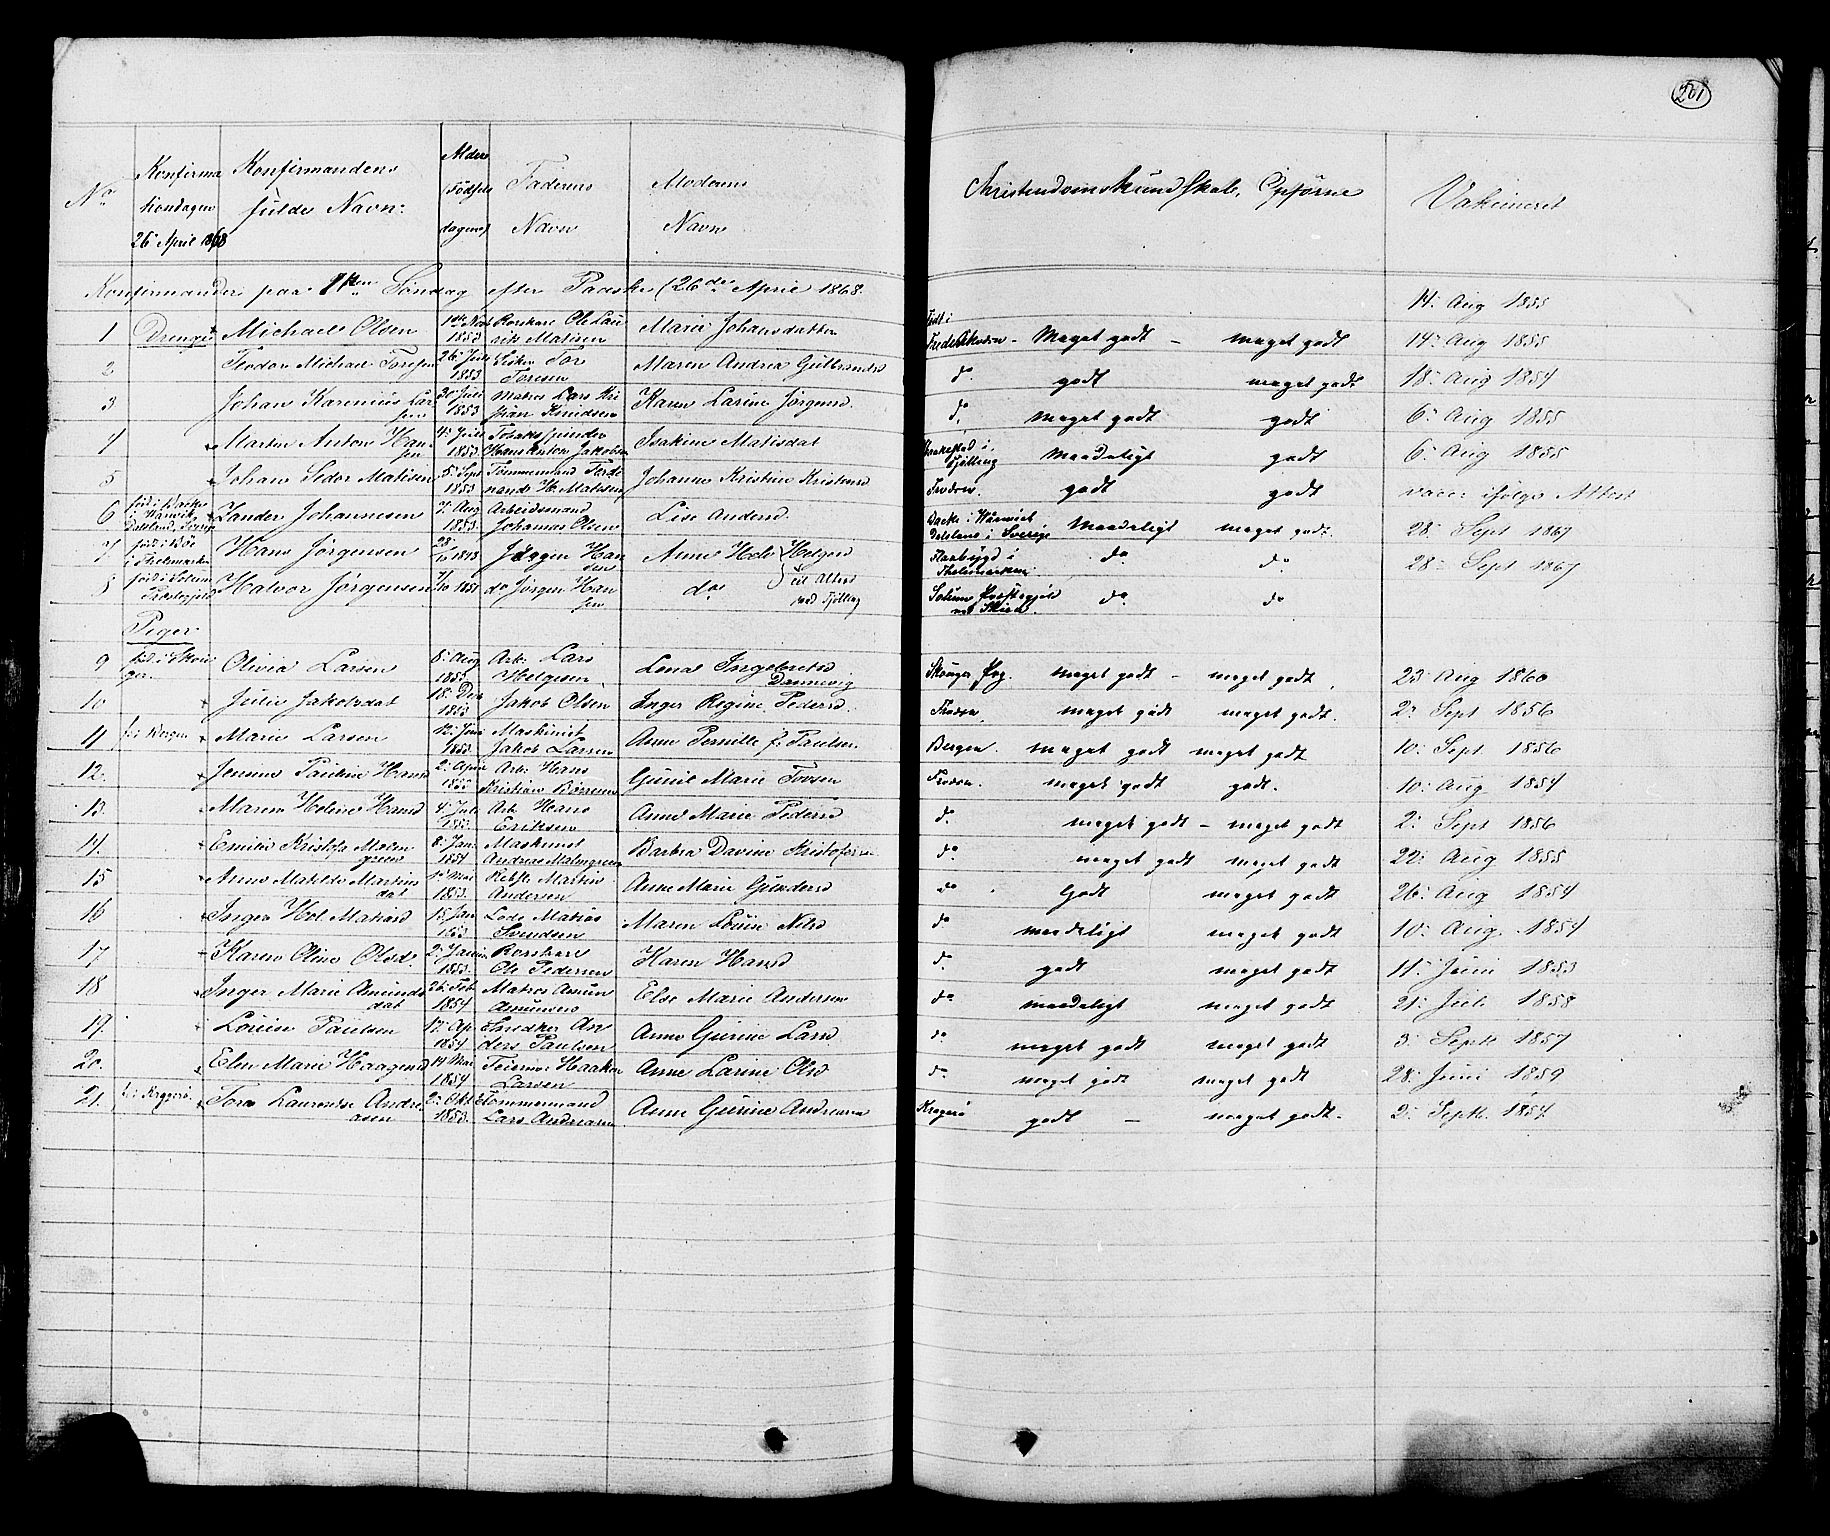 201
No
Konfirma
tiondagen
26 April 1868
Konfirmandens
fulde Navn
Alder
(Fødsels
dagen)
Faderens
Navn
Moderens
Navn
Christendomskundskab, Opførsel
Vakineret
Konfirmander paa Søndag efter Paaske (26de April 1868.
14: Aug 1855
1 Drenge Michael Olsen 1853 Ole Lau
rits Matisen Marie Johansdatter Født i Meget godt - meget godt 14: Aug 1855
2 Teodor Michael Toresen 26: 1853 Tor
Toresen Maren Andrea Gulbrandsd do godt meget godt 18: Aug 1854
3 Johan Karenius Lar
sen 20 Juli 1853 Matros Lars Kri
stian Knudsen Karen Larine Jørgensd. do. meget godt godt 6: Aug 1855
4 Martin Anton Han
sen 4: Juli 1853 Tobakspinder
Hans Anton Jakobsen Joakine Matisdat Tjølling Maadeligt godt 6: Aug 1855
5 Johan Sidor Matisen 5: Sept 1853 Tømmermand Ferdi
nand H. Matisen Johanne Kristine Kristensd godt godt varer ifølge Attest
6 Dalsland, Sverige Zander Johannesen 7: Aug 1853. Arbeidsmand
Johannes Olsen Lise Andersd Dalsland i Sverige Maadeligt meget godt. 28: Sept 1867
7 fød i Bøe
i Thelemarken Hans Jørgensen 28 Jørgen Han
sen Anne Helgesd Flaabygd i
Thelemarken do do 28: Sept 1867
8 fød i Solum
Præstegjeld Halvor Jørgensen 1851 do Jørgen Han
sen do Solum Præstegjeld
ved Skien. do do
Piger
9 Olivia Larsen 8: Aug Ar: Lars
Helgesen Lena Ingebretsd
Dannevig meget godt - meget godt 23: Aug 1860
10 Julie Jakobsdat 18: Dec 1853 Jakob Olsen Inger Regine Pedersd. meget godt meget godt. 2: Sept 1856
11 f. i Bergen Marie Larsen 12: 1853. Maskinist
Jakob Larsen Anne Pernille f. Paulsen Bergen. meget godt meget godt 10: Sept 1856
12. Jensine Pauline Hansd 2: April Arb: Hans
Kristian Gunil Marie meget godt godt. 10: Aug 1854
13. Maren Helene Hansd 4: Juli 1853. Arb. Hans
Eriksen Anne Marie Pedersd do. meget godt - meget godt 2: Sept 1856
14. Emilie Kristofa Malm
green 8: Jan: 1854 Maskinist
Andreas Malmgreen Barbra Davine do. meget godt meget godt 22: Aug 1855
15 Anne Matilde Martins
dat 1853. Martin
Andersen Anne Marie Gundersd do Godt meget godt 26: Aug 1854
16 Inger Matiasd 15: Jan 1853 Lods Matias
Svendsen Maren Louise Nilsd do maadeligt meget godt 10: Aug. 1854
17 Karen Oline Olsd. 2: 1853. Ole Pedersen Karen Hansd do. godt meget godt 11: Juni 1853
18 Inger Marie Amunds
dat 26: Feb 1854 Matros Amun
Else Marie Andersen do maadeligt meget godt 21: Juli 1858
19. Lovise Paulsen 17: Ap 1854 Snedker An
ders Paulsen Anne Gurine Larsd do meget godt meget godt 3: Sept 1857
20. Elen Marie Haagensd 14 Mai 1854 Haaken
Larsen Anne Larine Olsd do. meget godt meget godt 28: Juni 1859
21. f. i Kragerø. Tora Laurentse Andre
asen 2: Okt 1853. Tømmermand
Lars Andreasen Anne Gurine Andreasen Kragerø godt - meget godt. 2: Sept. 1854